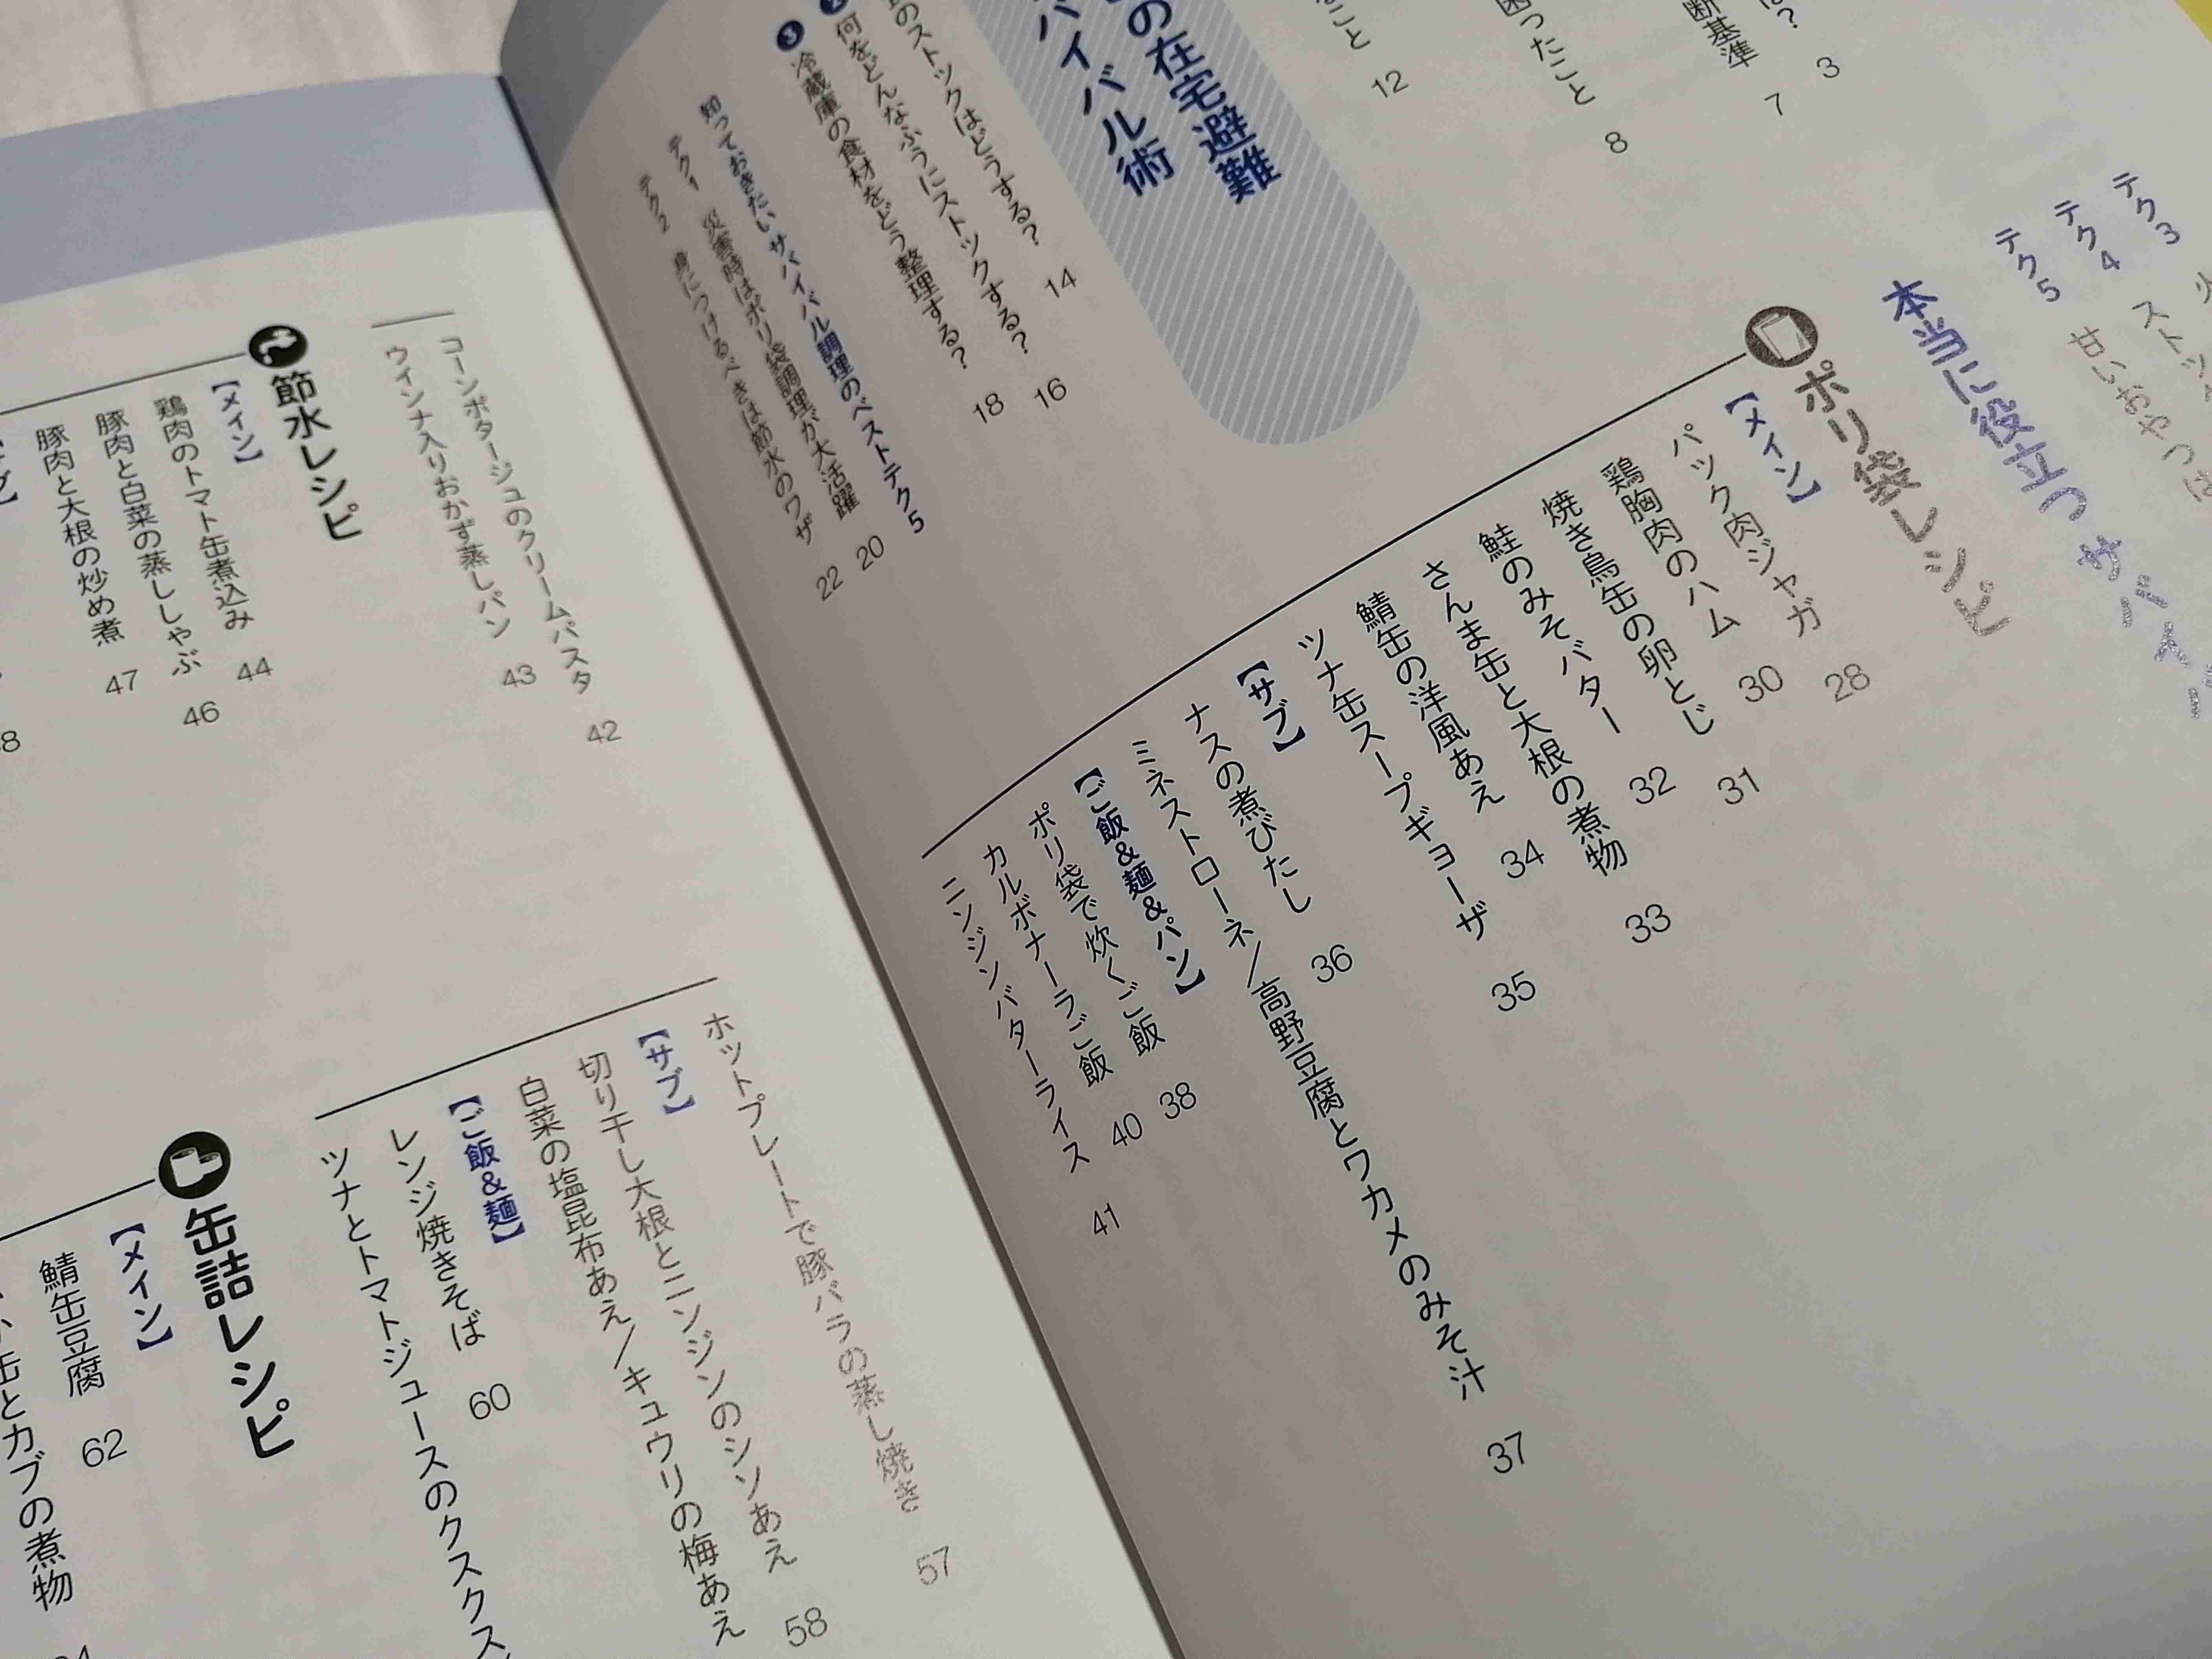 は?
3
断基準
7
困ったこと
8
こと
12
の在宅避難
バイバル術
のストックはどうする?
14
何をどんなふうにストックする?
16
3 冷蔵庫の食材をどう整理する?
18
知っておきたいサバイバル調理のベストテク5
テク1 災害時はポリ袋調理が大活躍
20
テク2 身につけるべきは節水のワザ
22
テク3
テク4 ストック
テク5 甘いおやつは
本当に役立つサバイバ
ポリ袋レシピ
【メイン】
パック肉ジャガ 28
鶏胸肉のハム 30
焼き鳥缶の卵とじ 31
鮭のみそバター 32
さんま缶と大根の煮物 33
鯖缶の洋風あえ 34
ツナ缶スープギョーザ 35
【サブ】
ナスの煮びたし 36
ミネストローネ/高野豆腐とワカメのみそ汁 37
【ご飯&麺&パン】
ポリ袋で炊くご飯 38
カルボナーラご飯 40
ニンジンバターライス 41
コーンポタージュのクリームパスタ 42
ウインナ入りおかず蒸しパン 43
節水レシピ
【メイン】
鶏肉のトマト缶煮込み 44
豚肉と白菜の蒸ししゃぶ 46
豚肉と大根の炒め煮 47
ホットプレートで豚バラの蒸し焼き 57
【サブ】
切り干し大根とニンジンのシソあえ 58
白菜の塩昆布あえ/キュウリの梅あえ
【ご飯&麺】
レンジ焼きそば 60
ツナとトマトジュースのクスクス
缶詰レシピ
【メイン】
鯖缶豆腐 62
缶とカブの煮物